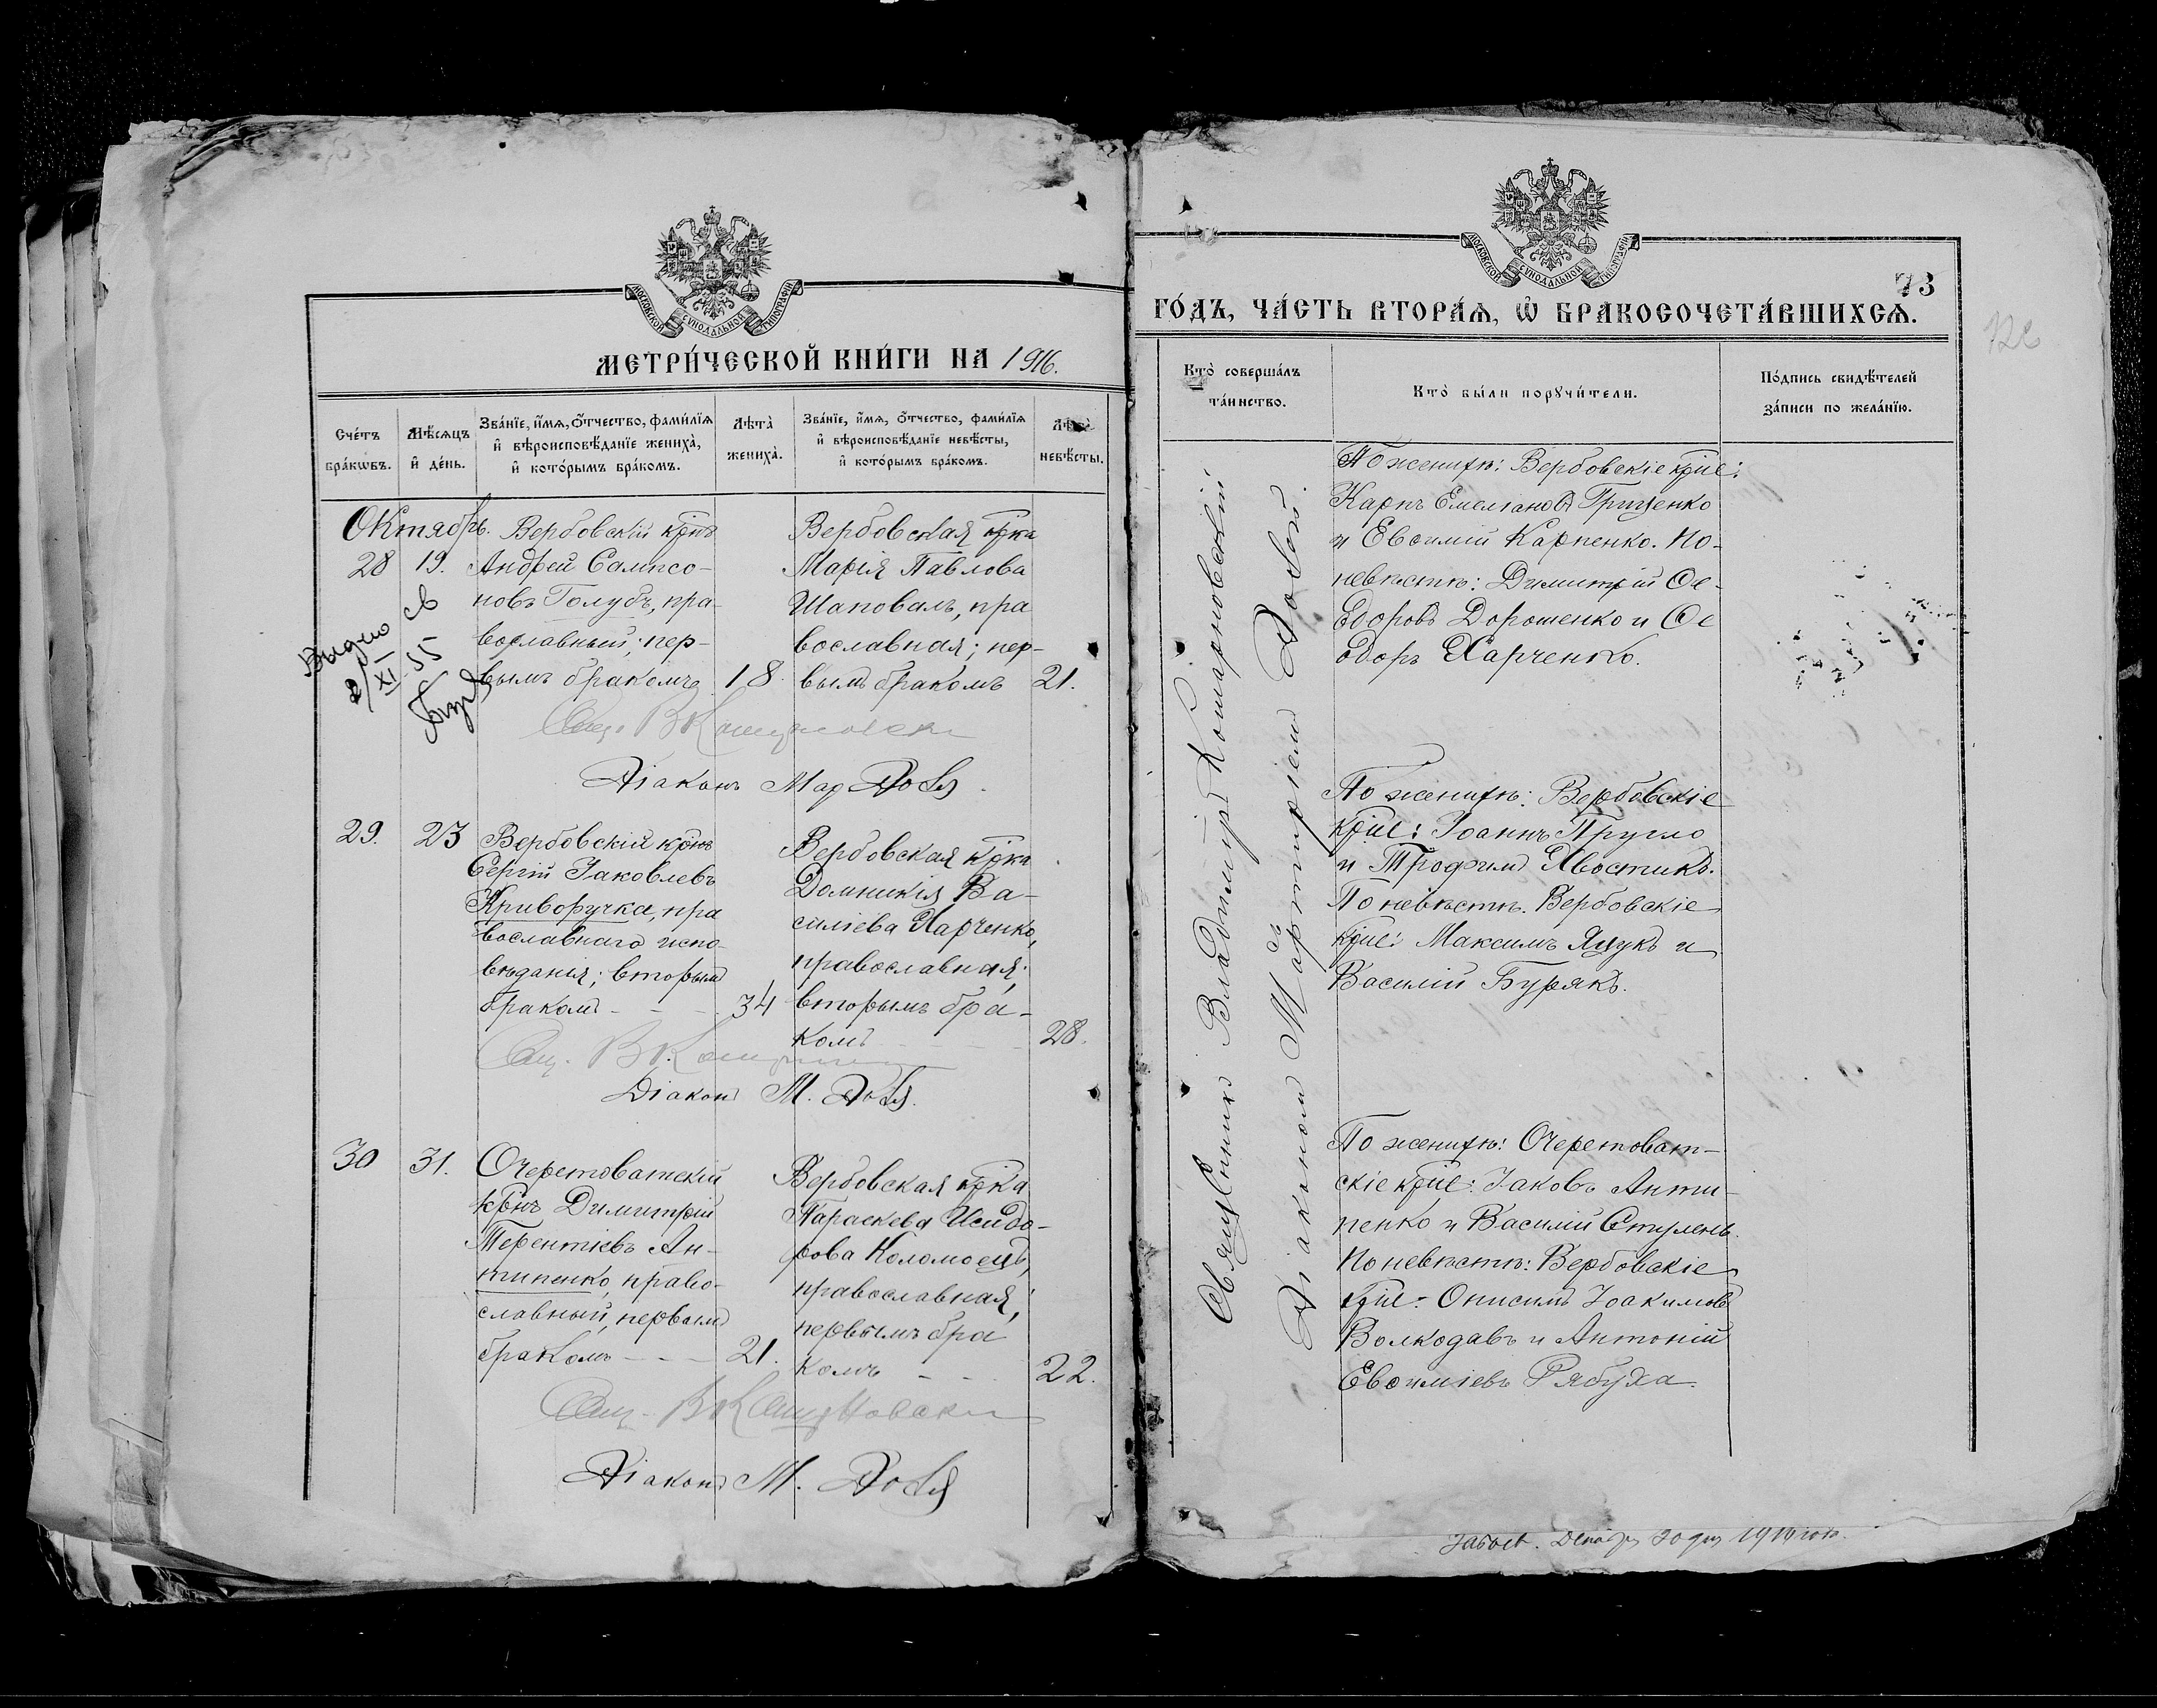 МОСКОВСКОЙ СѴНОДАЛЬНОЙ ТИПОГРАФІИ
МЕТРИ́ЧЕСКОЙ КНИ́ГИ НА 1916.
Сче́тъ бра́кѡвъ.
Мѣ́сяцъ и҆ де́нь.
Зва́нїе, и҆́мѧ, ѻ҆́тчество, фами́лїѧ и҆ вѣроисповѣ́данїе жениха̀, и҆ кото́рымъ бра́комъ.
Лѣта̀ жениха̀.
Зва́нїе, и҆́мѧ, ѻ҆́тчество, фами́лїѧ и҆ вѣроисповѣ́данїе невѣ́сты, и҆ кото́рымъ бра́комъ.
Лѣта̀ невѣ́сты.
Октябрь.
28
19.
Вербовскій крнъ
Андрей Сампсо-
новъ Голубъ, пра-
вославный; пер-
вымъ бракомъ
18
Вербовская крка
Марія Павлова
Шаповалъ, пра
вославная; пер-
вымъ бракомъ
21.
Выдано св
2/XI 55
Свящ. В Кошарновскі
Діаконъ Мар Довя
29.
23
Вербовскій крнъ
Сергій Іаковлевъ
Криворучка, пра
вославнаго испо-
вѣданія; вторымъ
бракомъ - - -
34
Вербовская крка
Домникія Ва-
силіева Харченко,
православная;
вторымъ бра-
комъ - - -
28.
Свящ. В Кошарнов
Діаконъ М. Довя
30
31.
Очеретоватскій
крнъ Димитрій
Терентіевъ Ан-
типенко, право-
славный, первымъ
бракомъ - - -
21.
Вербовская крка
Параскева Исидо-
рова Коломоецъ,
православная;
первымъ бра
комъ - -
22.
Свящ. В Кошарновскі
Діаконъ М. Довя
МОСКОВСКОЙ СѴНОДАЛЬНОЙ ТИПОГРАФІИ
73
ГО́ДЪ, ЧА́СТЬ ВТОРА́Ѧ, Ѽ БРАКОСОЧЕТА́ВШИХСѦ.
Кто̀ соверша́лъ та́инство.
Кто̀ бы́ли порꙋчи́тели.
По́дпись свидѣ́телей за́писи по жела́нїю.
Священникъ Владимиръ Кошарновскій
Діакономъ Мартиріемъ Довей.
По женихѣ: Вербовскіе крне:
Карпъ Емеліановъ Грищенко
и Евѳимій Карпенко. По-
невѣстѣ: Димитрій Ѳе-
одоровъ Дорошенко и Ѳе
одоръ Харченко.
По женихѣ: Вербовскіе
крне: Іоаннъ Пругло
и Трофимъ Хвостикъ.
По невѣстѣ. Вербовскіе
крне: Максимъ Яцукъ и
Василій Бурякъ.
По женихѣ: Очеретоват-
скіе крне: Іаковъ Анти-
пенко и Василій Ступень.
По невѣстѣ: Вербовскіе
крне: Онисимъ Іоакимовъ
Волкодавъ и Антоній
Евѳиміевъ Рябуха.